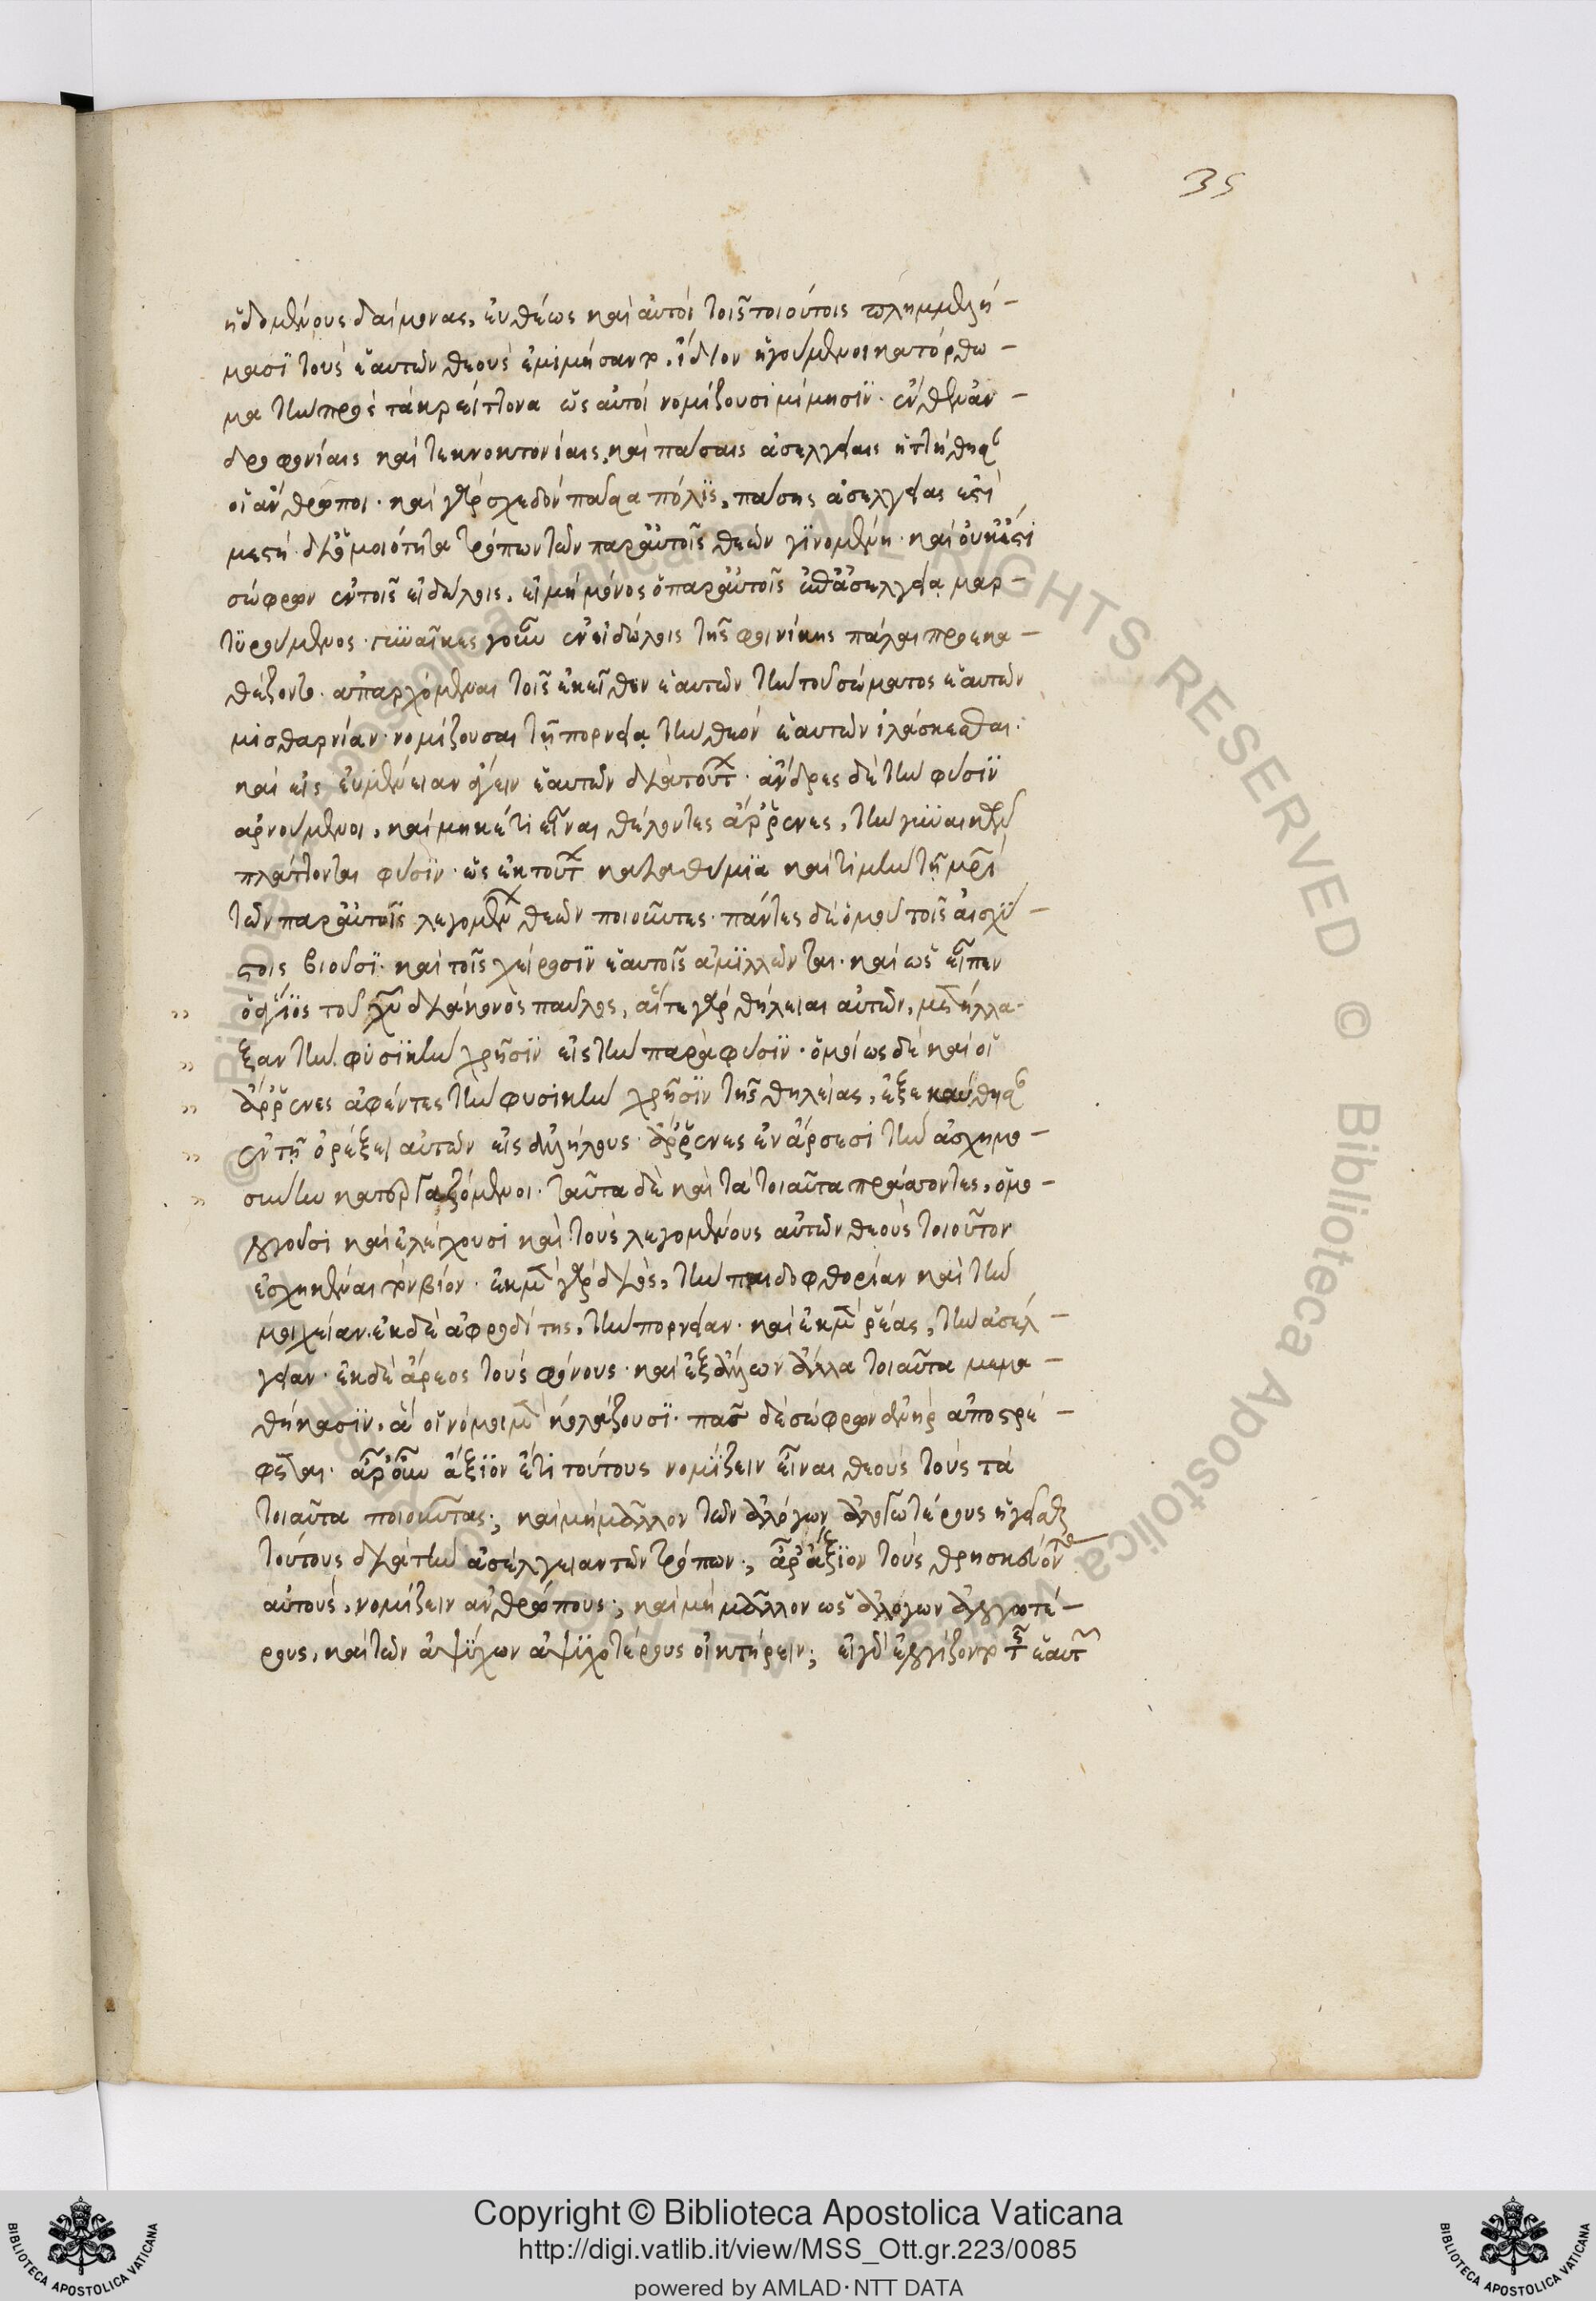 35
ἡδομένους δαίμονας, εὐθέως καὶ αὐτοὶ τοῖς τοιούτοις πλημμελή-
μασι τοὺς ἑαυτῶν θεοὺς ἐμιμήσαντο, ἴδιον ἡγούμενοι κατόρθω-
μα τὴν πρὸς τὰ κρείττονα ὡς αὐτοὶ νομίζουσι μίμησιν· ἔνθεν ἀν-
δροφονίαις καὶ τεκνοκτονίαις, καὶ πάσαις ἀσελγείαις ἡττήθησ(αν)
οἱ ἄνθρωποι· καὶ γὰρ σχεδὸν πᾶσα πόλις, πάσης ἀσελγείας ἐστὶ
μεστὴ δι' ὁμοιότητα τρόπων τῶν παρ' αὐτοῖς θεῶν γινομένη· καὶ οὐκ ἔστι
σώφρων ἐν τοῖς εἰδώλοις, εἰ μὴ μόνος ὁ παρ' αὐτοῖς ἐπ' ἀσελγείᾳ μαρ-
τυρούμενος· γυναῖκες γοῦν ἐν εἰδώλοις τῆς φοινίκης πάλαι προεκα-
θέζοντο· ἀπαρχόμεναι τοῖς ἐκεῖ θεοῖς ἑαυτῶν τὴν τοῦ σώματος ἑαυτῶν
μισθαρνίαν· νομίζουσαι τῇ πορνείᾳ τὴν θεὸν ἑαυτῶν ἱλάσκεσθαι·
καὶ εἰς εὐμένειαν ἄγειν ἑαυτῶν διὰ τούτ(ων)· ἄνδρες δὲ τὴν φύσιν
ἀρνούμενοι, καὶ μηκέτι εἶναι θέλοντες ἄρρενες, τὴν γυναικῶν
πλάττονται φύσιν· ὡς ἐκ τούτ(ων) καταθύμια καὶ τιμὴν τῇ μρὶ
τῶν παρ' αὐτοῖς λεγομέν(ων) θεῶν ποιοῦντες· πάντες δὲ ὁμοῦ τοῖς αἰσχί-
στοις βιοῦσι· καὶ τοῖς χείροσιν ἑαυτοῖς ἁμιλλῶνται· καὶ ὡς εἶπεν
ὁ ἅγιος τοῦ χῦ διάκονος παῦλος, αἵ τε γὰρ θήλειαι αὐτῶν, μετήλλα-
ξαν τὴν φυσικὴν χρῆσιν εἰς τὴν παρὰ φύσιν· ὁμοίως δὲ καὶ οἱ
ἄρρενες ἀφέντες τὴν φυσικὴν χρῆσιν τῆς θηλείας, ἐξεκαύθησ(αν)
ἐν τῇ ὀρέξει αὐτῶν εἰς ἀλλήλους· ἄρρενες ἐν ἄρσεσι τὴν ἀσχημο-
σύνην κατεργαζόμενοι· ταῦτα δὲ καὶ τὰ τοιαῦτα πράττοντες, ὁμο-
λογοῦσι καὶ ἐλέγχουσι καὶ τοὺς λεγομένους αὐτῶν θεοὺς τοιοῦτον
ἐσχηκέναι τὸν βίον· ἐκ μὲν γὰρ διὸς, τὴν παιδοφθορίαν καὶ τὴν
μοιχείαν· ἐκ δὲ ἀφροδίτης, τὴν πορνείαν· καὶ ἐκ μὲν ῥέας, τὴν ἀσέλ-
γειαν· ἐκ δὲ ἄρεος τοὺς φόνους· καὶ ἐξ ἄλλων ἄλλα τοιαῦτα μεμα-
θήκασιν, ἃ οἱ νόμοι μὲν κολάζουσι· πᾶς δὲ σώφρων ἀνὴρ ἀποστρέ-
φεται· ἆρ' οὖν ἄξιον ἔτι τούτους νομίζειν εἶναι θεοὺς τοὺς τὰ
τοιαῦτα ποιοῦντας; καὶ μὴ μᾶλλον τῶν ἀλόγων ἀλογωτέρους ἡγεῖσθ(αι)
τούτους διὰ τὴν ἀσέλγειαν τῶν τρόπων; ἆρ' ἄξιον τοὺς θρησκεύοντ(ας)
αὐτοὺς, νομίζειν ἀνθρώπους; καὶ μὴ μᾶλλον ὡς ἀλόγων ἀλογωτέ-
ρους, καὶ τῶν ἀψύχων ἀψυχοτέρους οἰκτείρειν; εἰ γὰρ ἐλογίζοντο τῆς ἑαυτῶν
Copyright © Biblioteca Apostolica Vaticana
http://digi.vatlib.it/view/MSS_Ott.gr.223/0085
powered by AMLAD·NTT DATA